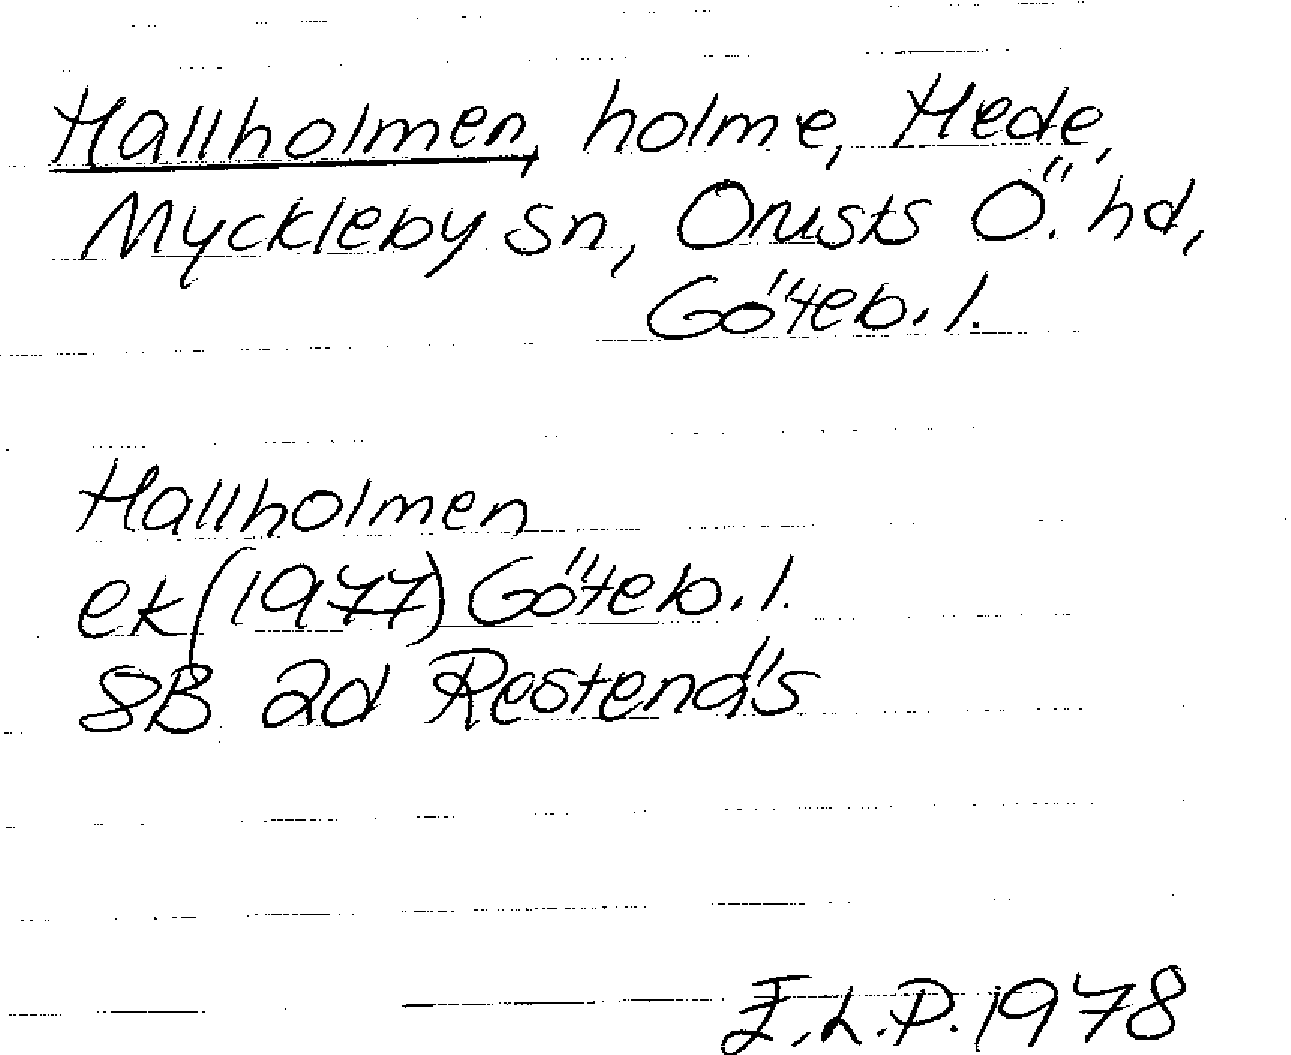 Hallholmen, holme, Hede,
Myckleby sn, Orusts Ö. hd,
Göteb. l.
Hallholmen
ek (1977) Göteb. l.
8B 2d Restenäs
E.L.P. 1978